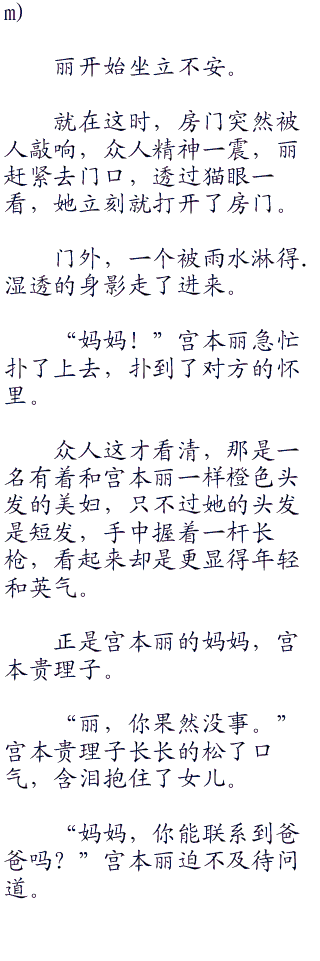 m)
丽开始坐立不安。
就在这时，房门突然被
人敲响，众人精神一震，丽
赶紧去门口，透过猫眼一
看，她立刻就打开了房门。
门外，一个被雨水淋得.
湿透的身影走了进来。
“妈妈！”宫本丽急忙
扑了上去，扑到了对方的怀
里。
众人这才看清，那是一
名有着和宫本丽一样橙色头
发的美妇，只不过她的头发
是短发，手中握着一杆长
枪，看起来却是更显得年轻
和英气。
正是宫本丽的妈妈，宫
本贵理子。
“丽，你果然没事。”
宫本贵理子长长的松了口
气，含泪抱住了女儿。
“妈妈，你能联系到爸
爸吗？”宫本丽迫不及待问
道。